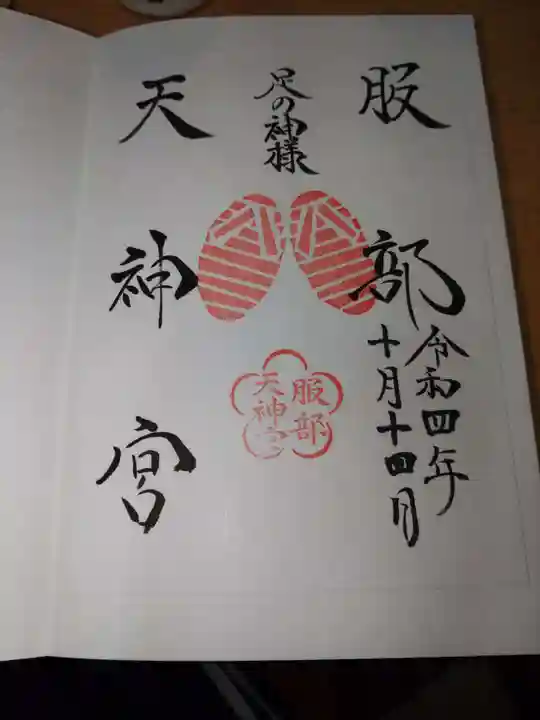 服部
令和四年
十月十四日
足の神様
服部
天神宮
天神宮